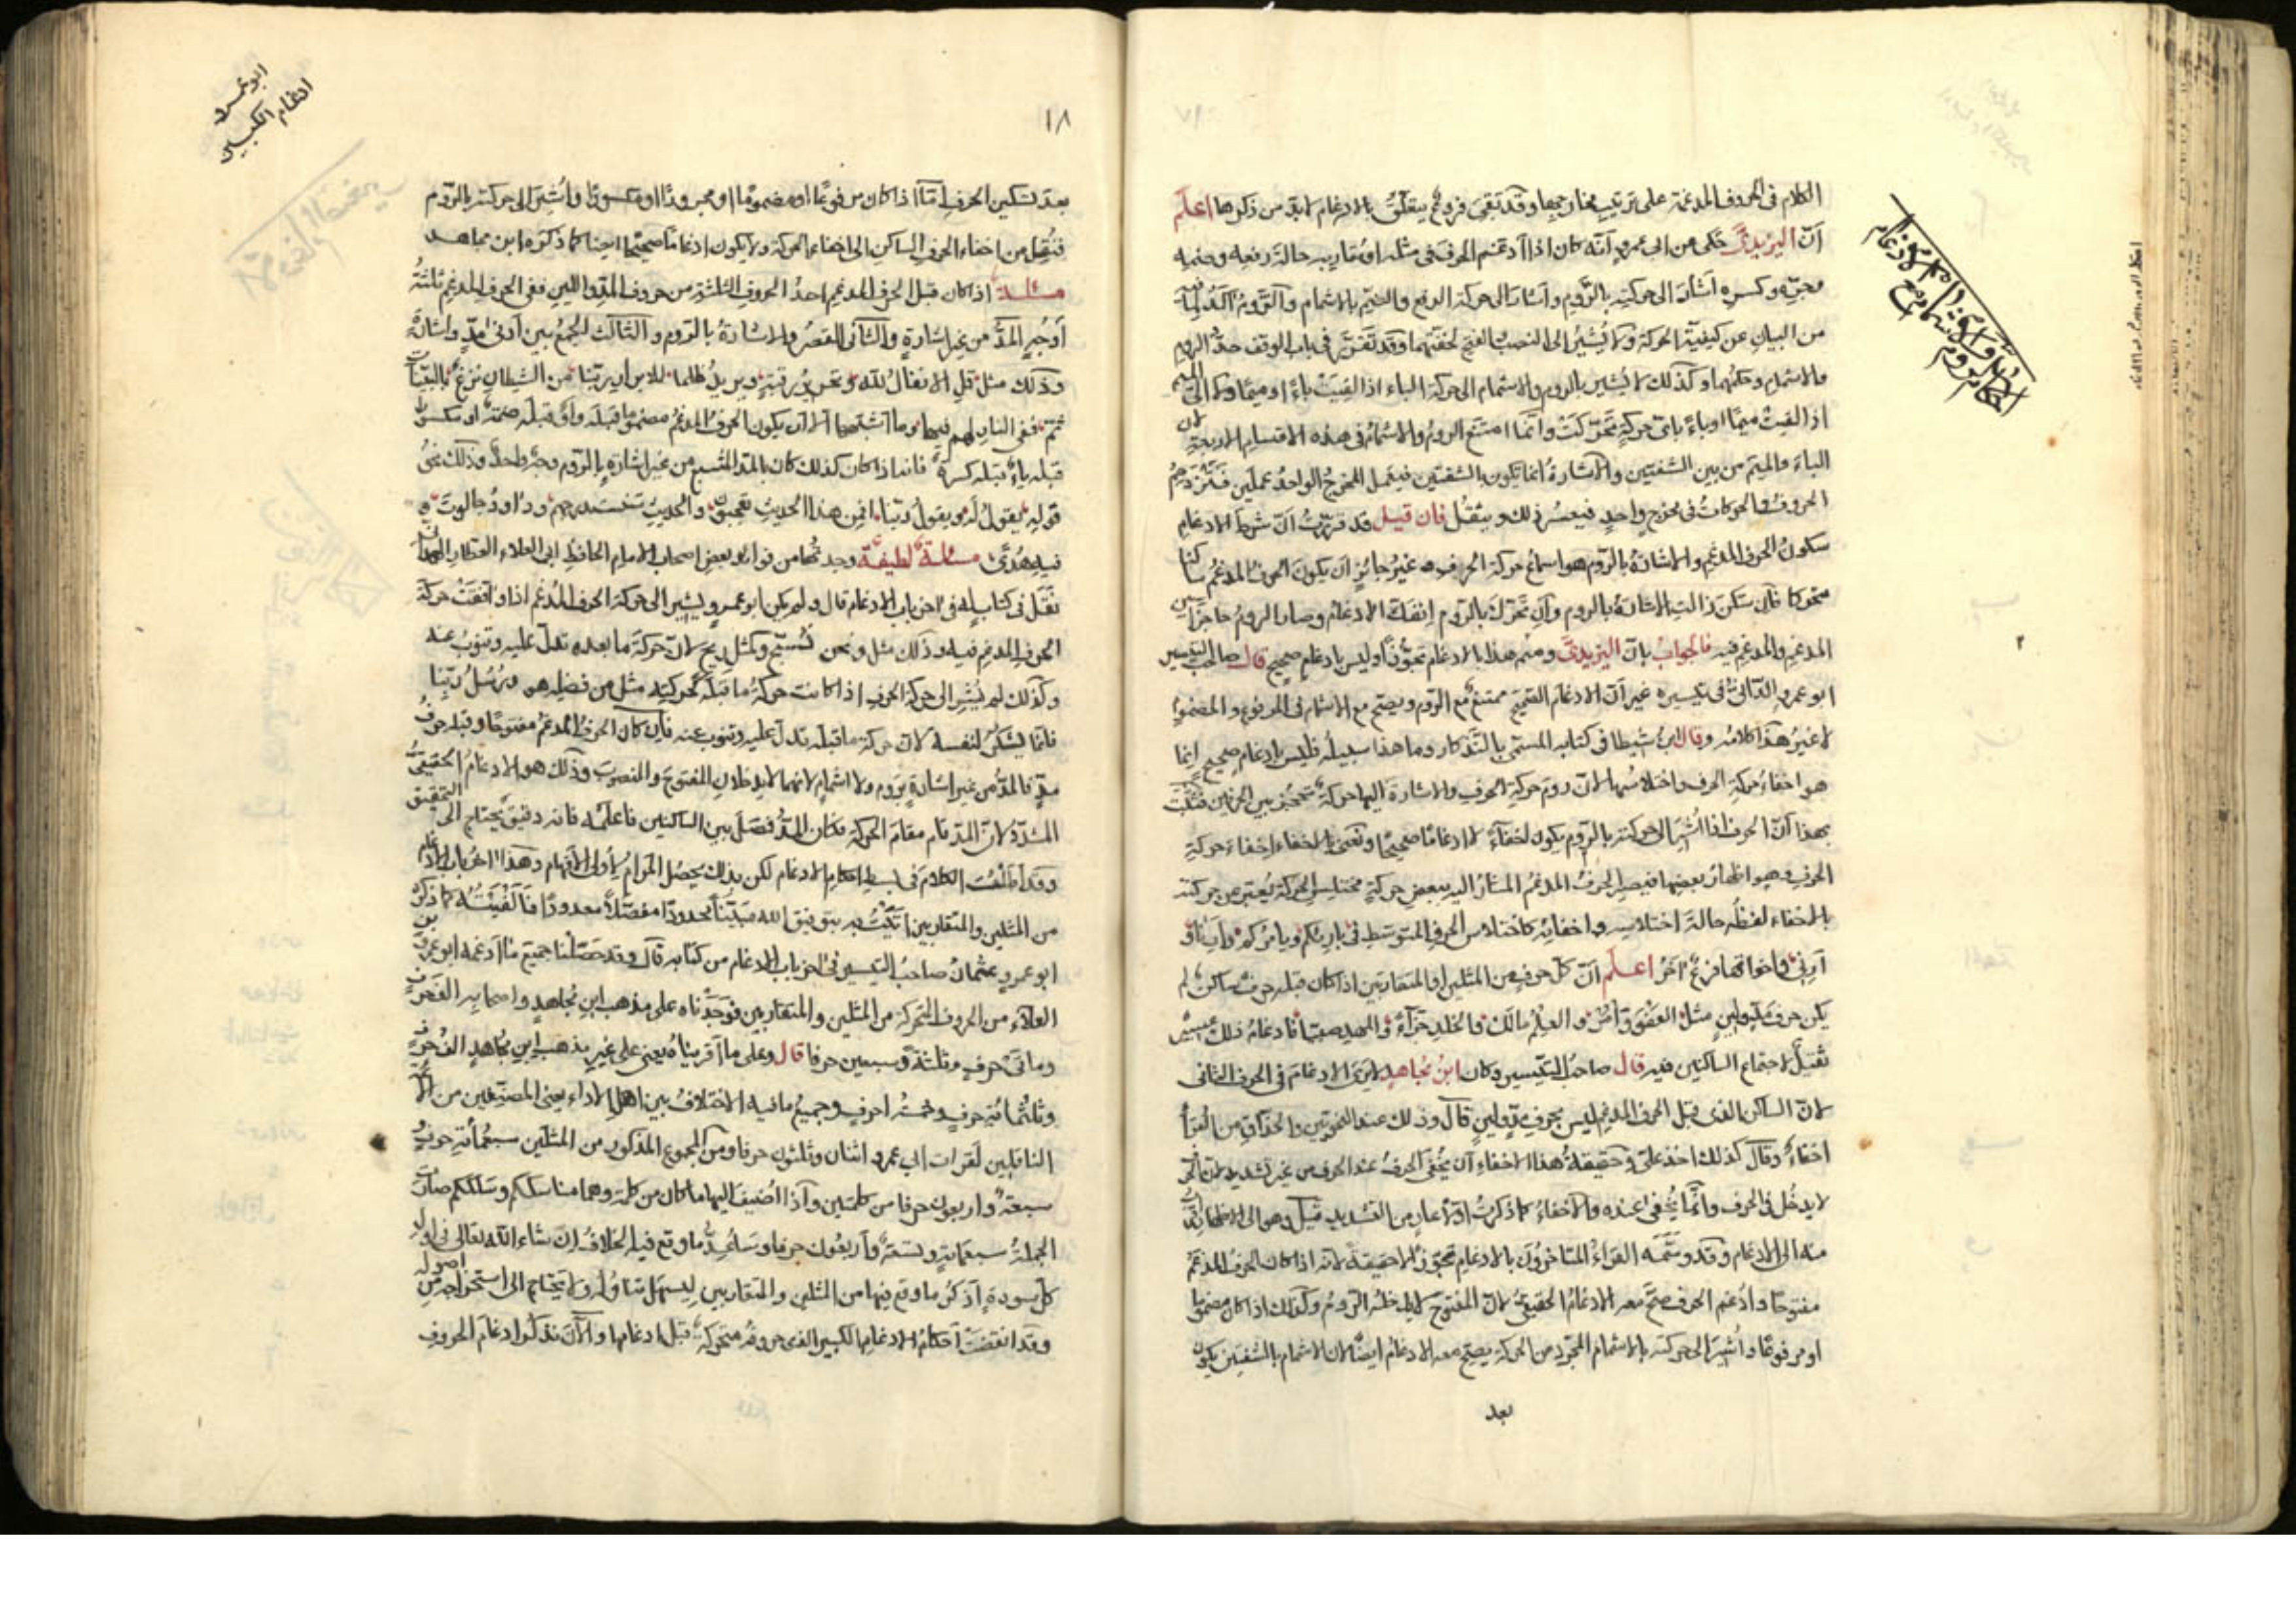 الكلام فى الحروف المدغمة على ترتيب مخارجها وقد تبقى فروع يتعلق بالادغام لابد من ذكرها اعلم
انّ اليزيدىّ حكى عن ابى عمرو انّه كان اذا ادغم الحرف فى مثله او مقاربه حالة رفعه وضمه
وجره وكسره اشار الى حركته بالروم واشار الى حركة الرفع والضم بالاشمام والروم آكد لما فيه
من البيان عن كيفية الحركة ولا يُشير الى النصب والفتح لخفتهما وقد تقرر فى باب الوقف حدّ الروم
والاشمام وحكمهما وكذلك لا يُشير بالروم والاشمام الى حركة الباء اذا لقيت باءً او ميمًا ولا الى الميم
اذا لقيت ميمًا او باءً باىّ حركة تحركت وانّما امتنع الروم والاشمام فى هذه الاقسام الاربعة لان
الباء والميم من بين الشفتين والاشارة انما تكون بالشفتين فيعمل المخرج الواحد عملين فتزدحم
الحروف والحركات فى مخرج واحد فيعسر ذلك ويثقل فان قيل قد قررت انّ شرط الادغام
سكون الحرف المدغم والاشارة بالروم هو اسماع حركة الحرف غير جائز ان يكون الحرف المدغم ساكنا
متحركا فان سكن زالت الاشارة بالروم وان تحرّك بالروم انفك الادغام وصار الروم حاجزا بين
المدغم والمدغم فيه فالجواب بانّ اليزيدىّ وسم هذا بالادغام تجوّزًا وليس بادغام صحيح قال صاحب التيسير
ابو عمرو الدّانىّ فى تيسيره غير انّ الادغام الصحيح ممتنع مع الروم ويصح مع الاشمام فى المرفوع والمضموم
لا غير هذا كلامه وقال ابن شيطا فى كتابه المسمى بالتذكار وما هذا سبيله فليس بادغام صحيح انما
هو اخفاء حركة الحرف واختلاسها لانّ روم حركة الحرف والاشارة اليها حركة تحجز بين الحرفين فثبت
بهذا انّ الحرف اذا اُشير الى حركته بالروم يكون اخفاءً لا ادغامًا صحيحًا ونعنى بالاخفاء اخفاء حركة
الحرف وهو اظهار بعضها فيصير الحرف المدغم المشار اليه ببعض حركة مختلس الحركة يُعبر عن حركته
بالاخفاء لفظه حالة اختلاسه واخفائه كاختلاس الحرف المتوسط فى بارئكم ويامركم وارنا و
ارنى واخواتها فرع آخر اعلم انّ كل حرف من المثلين او المتقاربين اذا كان قبله حرف ساكن لم
يكن حرف مدّ ولين مثل العفو وأمر والعلم مالك والخلد جزآء والمهد صبيا فادغام ذلك عسير
ثقيل لاجتماع الساكنين فيه قال صاحب التيسير وكان ابن مجاهد لا يرى الادغام فى الحرف الثانى
لانّ الساكن الذى قبل الحرف المدغم ليس بحرف مدّ ولين قال وذلك عند النحويين والحذاق من القرأ
اخفاء وقال كذلك اخذ علىّ وحقيقة هذا الاخفاء ان يُخفى الحرف عند الحرف من غير تشديد لانّ الحرف
لا يدخل فى الحرف وانّما يُخفى عنده والاخفاء كما ذكرت اولًا عار من التشديد قيل وهو الى الاظهار اقرب
منه الى الادغام وقد وسّمه القراء المتاخرون بالادغام تجوّزًا لا حقيقة لانه اذا كان الحرف المدغم
مفتوحًا واُدغم الحرف صحّ معه الادغام الحقيقى لانّ المفتوح لا يدخله الروم وكذلك اذا كان مضموما
او مرفوعًا واُشير الى حركته بالاشمام المجرّد من الحركة يصح معه الادغام ايضًا لان الاشمام بالشفتين يكون
بعد
١٨
ابو عمرو
ادغام الكبير
بعد تسكين الحرف امّا اذا كان مرفوعًا او مضمومًا او مجرورًا او مكسورًا واُشير الى حركته بالروم
فنُقل من اخفاء الحرف الساكن الى اخفاء الحركة ولا يكون ادغامًا صحيحًا ايضا كما ذكره ابن مجاهد
مسئلة اذا كان قبل الحرف المدغم احدُ الحروف الثلثة من حروف المدّ واللين ففى الحرف المدغم ثلثةُ
اوجُهٍ المدّ من غير اشارةٍ والثانى القصرُ والاشارةُ بالروم والثالث الجمعُ بين ادنى مدّ واشارةٍ
وذلك مثل قل الانفال لله وتحرير رقبة ويريد ظلما للابرار ربنا من الشيطان نزغ بالبينات
ثم ففى النار لهم فيها وما اشبهها الا ان يكون الحرف المدغم مضموما قبله واو قبله ضمة او مكسورا
قبله ياء قبله كسرة فانه اذا كان كذلك كان بالمد المشبع من غير اشارة بالروم وجهًا واحدًا وذلك نحو
قوله يقول له ويقول ربنا افمن هذا الحديث تعجبون والحديث سنستدرجهم وداود جالوت و
فيه هُدًى مسئلة لطيفة وجدتها من فوائد بعض اصحاب الامام الحافظ ابى العلاء العطار الهمذانى
نقل فى كتاب له فى آخر باب الادغام قال ولم يكن ابو عمرو يشير الى حركة الحرف المدغم اذا وافقت حركة
الحرف المدغم فيه وذلك مثل ونحن نُسبّح وكمثل ريح لانّ حركة ما بعده تدلّ عليه وتنوب عنه
وكذلك لم يُشر الى حركة الحرف اذا كانت حركة ما قبله كحركته مثل من فضله هو ورُسُل ربّنا
فانّما يسكن لنفسه لانّ حركة ما قبله تدلّ عليه وتنوب عنه فان كان الحرف المدغم مفتوحًا وقبله حرف
مدّ فالمدّ من غير اشارة بروم ولا اشمام لانهما لا يدخلان المفتوح والمنصوب وذلك هو الادغام الحقيقىّ
المشدّد لانّ المدّ قام مقام الحركة فكان المدّ فصل بين الساكنين فاعلمه فانه دقيق يحتاج الى التحقيق
وقد اطلقت الكلام فى بسط احكام الادغام لكن بذلك يحصل المرام لاولى الافهام وهذا اخر باب الادغام
من المثلين والمتقاربين اتيتُ به بتوفيق الله مبيّنًا محدودًا مفصّلًا معدودًا فالفيته كما ذكره
ابو عمرو عثمان صاحب التيسير فى آخر باب الادغام من كتابه قال وقد حصّلنا جميع ما ادغمه ابو عمرو بن
العلآء من الحروف المتحركة من المثلين والمتقاربين فوجدناه على مذهب ابن مجاهد واصحابه الف حرف
ومائتى حرف وثلثة وسبعين حرفا قال وعلى ما اقريناه يعنى على غير مذهب ابن مجاهد الف حرف
وثلثمائة حرف وخمسة احرف وجميع ما فيه الاختلاف بين اهل الاداء يعنى المصنفين من
الناقلين لقرات ابى عمرو اثنان وثلثون حرفا ومن المجموع المذكور من المثلين سبعمأئة حرف
سبعة واربعون حرفا من كلمتين واذا اُضيف اليها ما كان من كلمة وهما مناسككم وسلككم صارت
الجملة سبعمائة وتسعة واربعون حرفا وساعُدّ ما وقع فيه الخلاف ان شاء الله تعالى فى اول
كل سورة اذكر ما وقع فيها من المثلين والمتقاربين ليسهل تناوله ولا يحتاج الى استخراجه من اصوله
وقد انقضت احكام الادغام الكبير الذى حروفه متحركة قبل ادغامها والآن نذكر ادغام الحروف